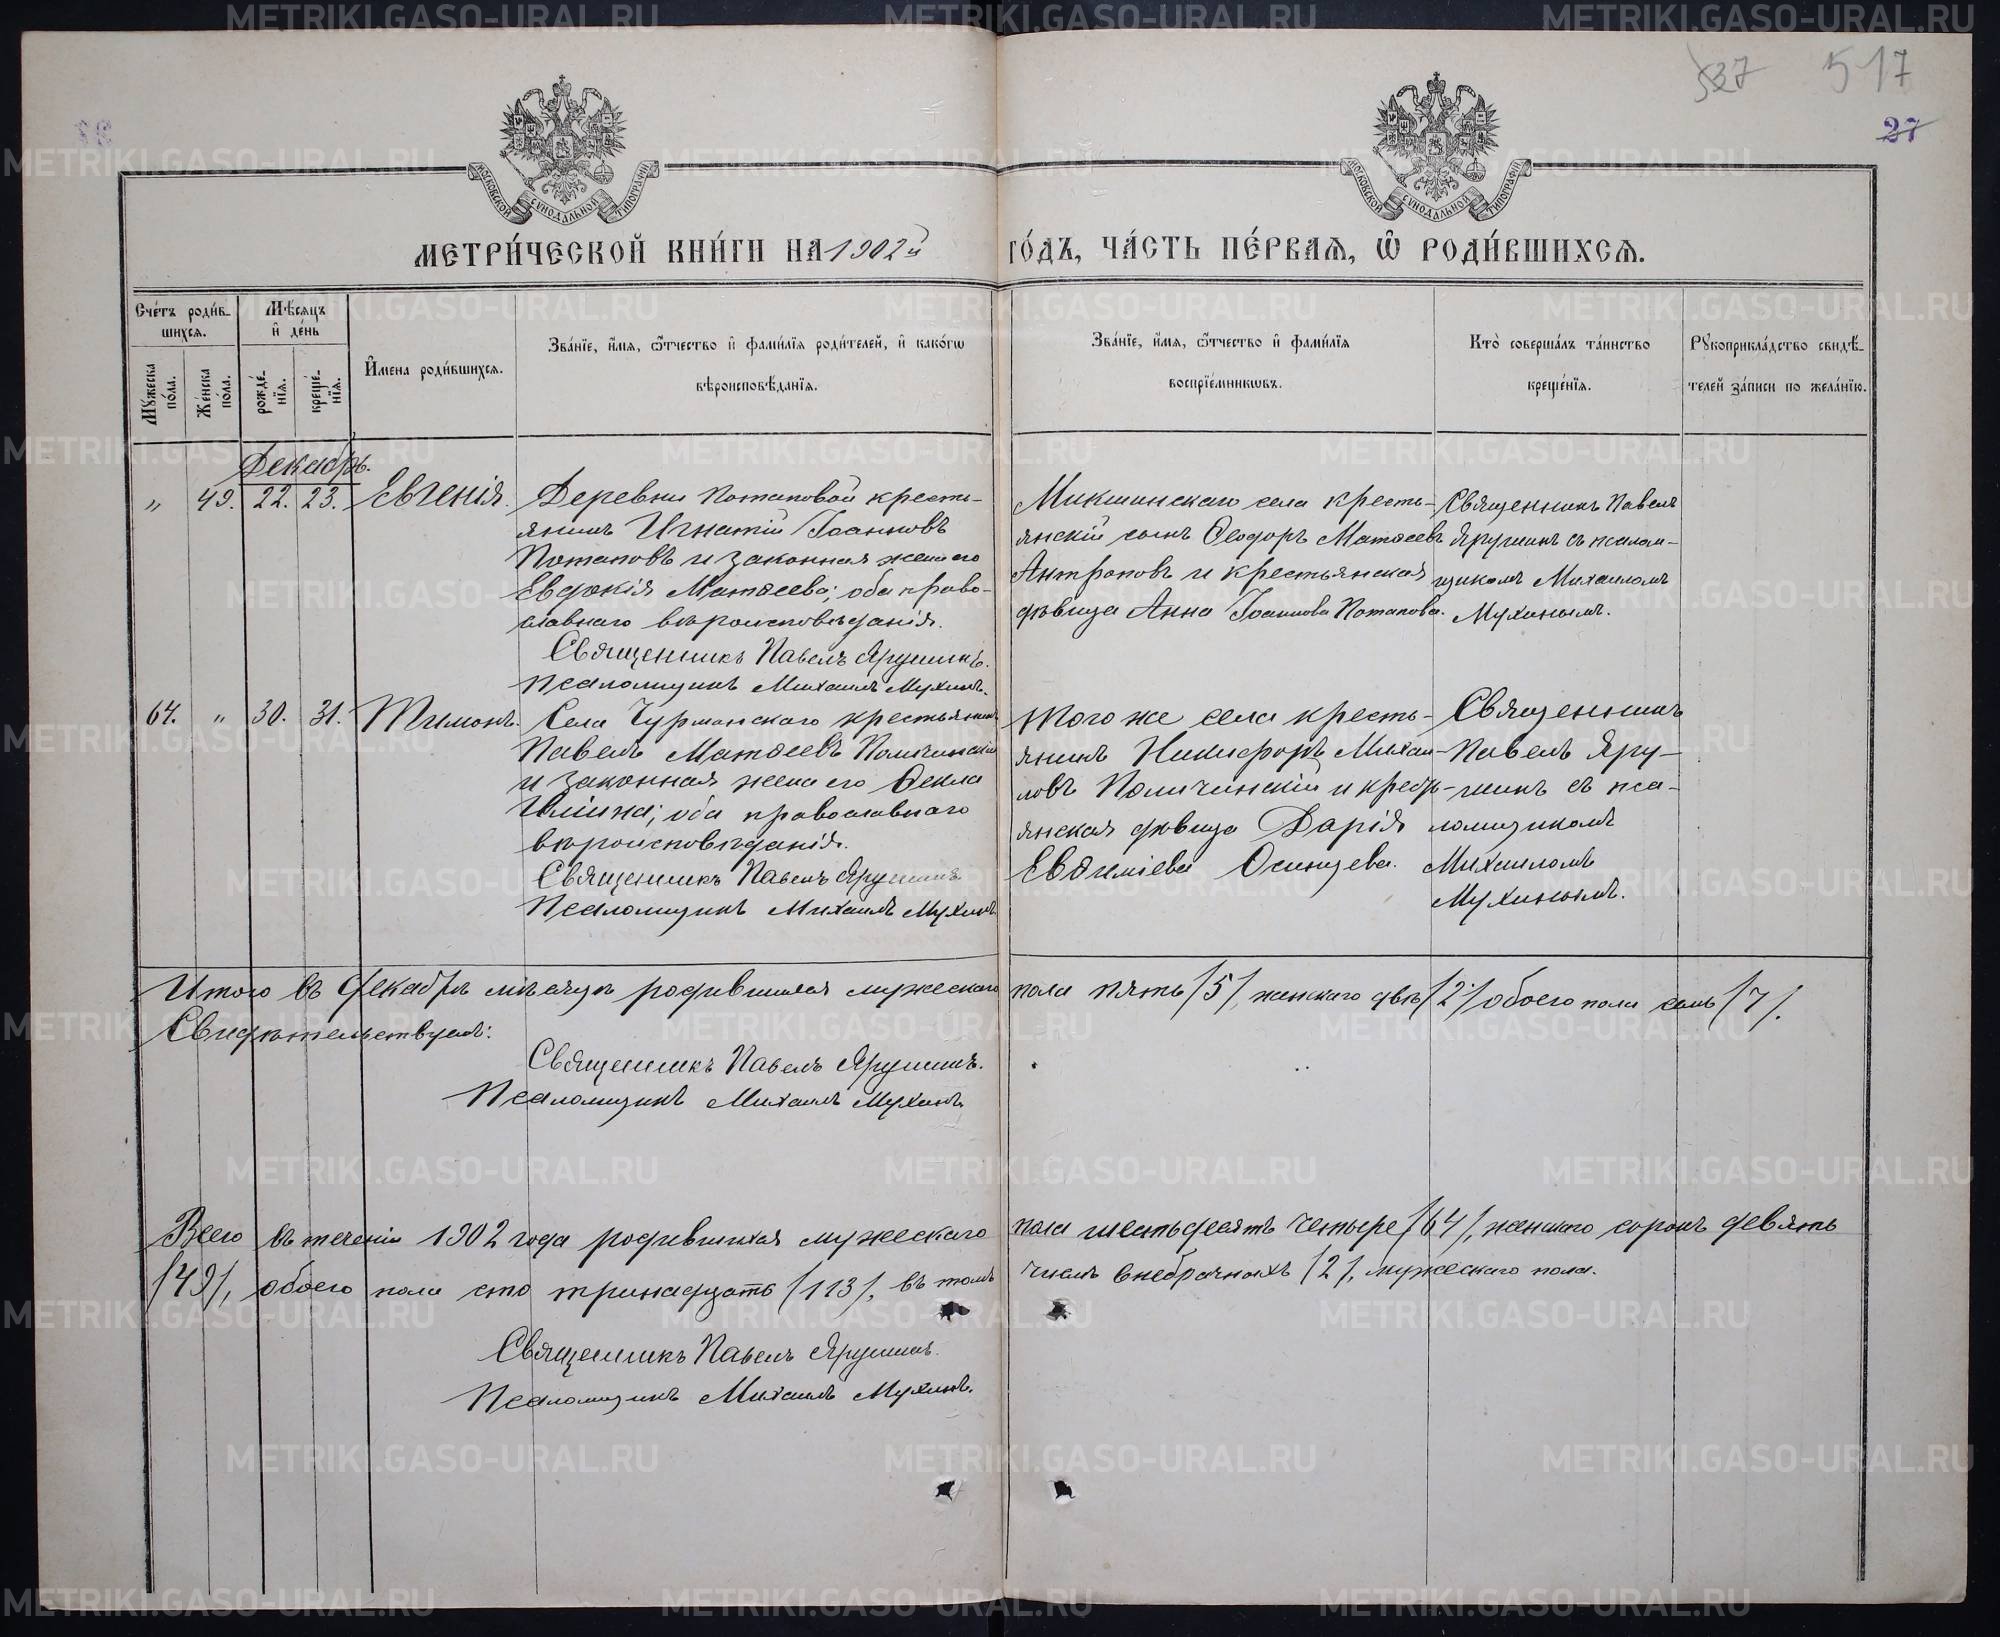 537 517
27
МОСКОВСКОЙ СѴНОДАЛЬНОЙ ТИПОГРАФІИ
МОСКОВСКОЙ СѴНОДАЛЬНОЙ ТИПОГРАФІИ
МЕТРИ́ЧЕСКОЙ КНИ́ГИ НА 1902й ГО́ДЪ, ЧА́СТЬ ПЕ́РВАЯ, Ѽ РОДИ́ВШИХСЯ.
Сче́тъ роди́в-
шихся.
Мѣ́сяцъ
и҆ де́нь
Мꙋ́жеска по́ла.
Же́нска по́ла.
рожде́-
нїя.
креще́-
нїя.
И҆мена роди́вшихся.
Зва́нїе, и҆́мя, ѻ҆́тчество и҆ фами́лїя роди́телей, и҆ како́гѡ
вѣроисповѣ́данїя.
Зва́нїе, и҆́мя, ѻ҆́тчество и҆ фами́лїя
воспрїе́мникѡвъ.
Кто̀ соверша́лъ та́инство
креще́нїя.
Рꙋкоприкла́дство свидѣ́-
телей за́писи по жела́нїю.
Декабрь.
„ 49. 22. 23. Евгенія.
Деревни Потаповой кресть-
янинъ Игнатій Іоанновъ
Потаповъ и законная жена его
Евдокія Матѳеева; оба право-
славнаго вѣроисповѣданія.
Священникъ Павелъ Ярушинъ.
Псаломщикъ Михаилъ Мухинъ.
Микшинскаго села кресть-
янскій сынъ Ѳеодоръ Матѳеевъ
Антроповъ и крестьянская
дѣвица Анна Іоаннова Потапова.
Священникъ Павелъ
Ярушинъ съ псалом-
щикомъ Михаиломъ
Мухинымъ.
64. „ 30. 31. Тимонъ.
Села Чурманскаго крестьянинъ
Павелъ Матѳеевъ Поличинскій
и законная жена его Ѳекла
Ильина; оба православнаго
вѣроисповѣданія.
Священникъ Павелъ Ярушинъ.
Псаломщикъ Михаилъ Мухинъ
Того же села кресть-
янинъ Никифоръ Михаи-
ловъ Поличинскій и кресть-
янская дѣвица Дарія
Евѳиміева Осинцева.
Священникъ
Павелъ Яру-
шинъ съ пса-
ломщикомъ
Михаиломъ
Мухинымъ.
Итого въ Декабрѣ мѣсяцѣ родившихся мужескаго пола пять /5/, женскаго двѣ /2/ обоего пола семь /7/.
Свидѣтельствуемъ:
Священникъ Павелъ Ярушинъ.
Псаломщикъ Михаилъ Мухинъ.
Всего въ теченіи 1902 года родившихся мужескаго пола шестьдесятъ четыре /64/, женскаго сорокъ девять
/49/, обоего пола сто тринадцать /113/, въ томъ числѣ внебрачныхъ /2/, мужескаго пола.
Священникъ Павелъ Ярушинъ.
Псаломщикъ Михаилъ Мухинъ.
METRIKI.GASO-URAL.RU